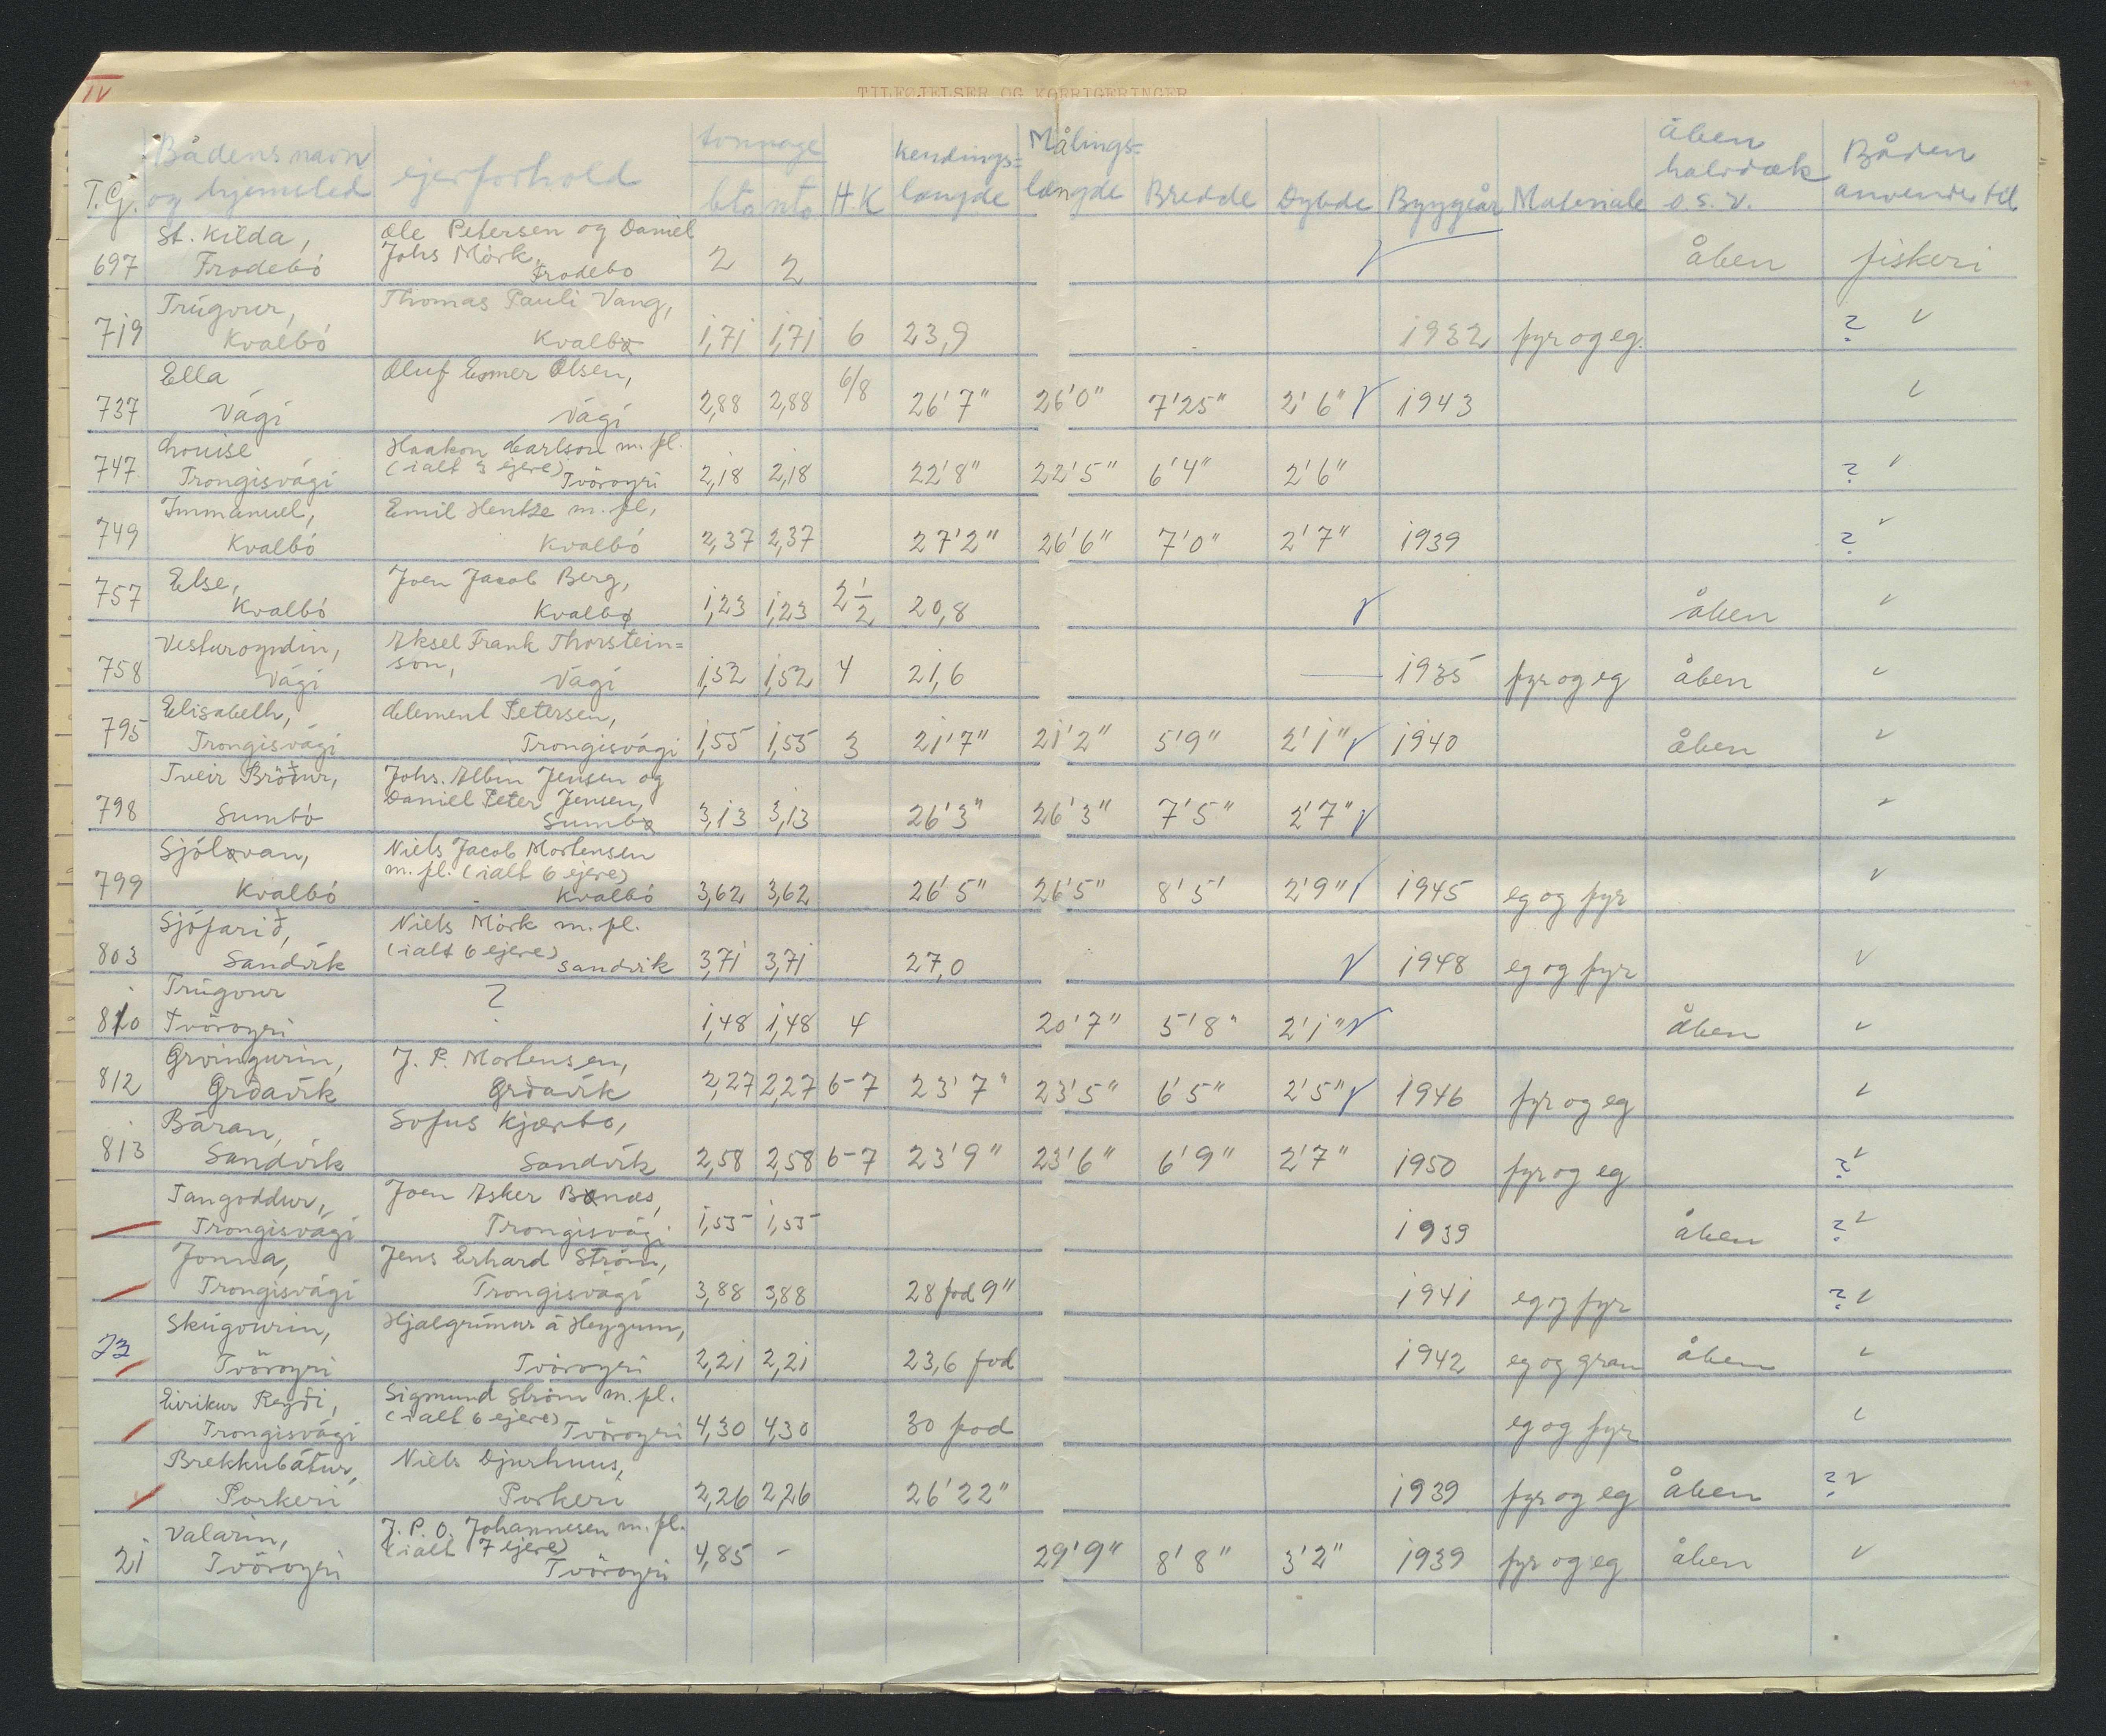 IV
TILFØJELSER OG KORRIGERINGER
T.G. Bådens navn og hjemsted ejerforhold tonnage bto nto H.K kendings=længde Målings=længde Bredde Dybde Byggeår Materiale åben halvdæk o.s.v. Båden anvendes til
St. Kilda, Ole Petersen og Daniel
697 Frodebö Johs Mörk, Frodebo 2 2 √ åben fiskeri
Trúgvur, Thomas Pauli Vang,
719 Kvalbö Kvalbø 1,71 1,71 6 23,9 1932 fyr og eg. ? √
Ella Oluf Esmer Olsen,
737 Vági Vági 2,88 2,88 6/8 26'7" 26'0" 7'25" 2'6" √ 1943 √
Louise Haakon Carlson m. fl.
747 Trongisvági (ialt 2 ejere) Tvöroyri 2,18 2,18 22'8" 22'5" 6'4" 2'6" ? √
Immanuel, Emil Hentze m. fl,
749 Kvalbö Kvalbö 2,37 2,37 27'2" 26'6" 7'0" 2'7" 1939 ? √
Else, Joen Jacob Berg,
757 Kvalbö Kvalbø 1,23 1,23 2 1/2 20,8 √ åben √
Vesturoyndin, Aksel Frank Thorstein=
758 Vági son, Vági 1,52 1,52 4 21,6 — 1935 fyr og eg åben √
Elisabeth, Clement Petersen,
795 Trongisvági Trongisvági 1,55 1,55 3 21'7" 21'2" 5'9" 2'1" √ 1940 åben √
Tveir Bröður, Johs. Albin Jensen og
798 Sumbö Daniel Peter Jensen, Sumbø 3,13 3,13 26'3" 26'3" 7'5" 2'7" √ √
Sjóløvan, Niels Jacob Mortensen
799 Kvalbö m. fl. (ialt 6 ejere) Kvalbö 3,62 3,62 26'5" 26'5" 8'5' 2'9" √ 1945 eg og fyr √
Sjófarið, Niels Mörk m. fl.
803 Sandvík (ialt 6 ejere) Sandvik 3,71 3,71 27,0 √ 1948 eg og fyr √
Trúgvur ?
810 Tvöroyri 1,48 1,48 4 20'7" 5'8" 2'1" √ åben √
Grvingurin, J. P. Mortensen,
812 Grðavík Grðavík 2,27 2,27 6-7 23'7" 23'5" 6'5" 2'5" √ 1946 fyr og eg √
Báran, Sofus Kjærbo,
813 Sandvík Sandvík 2,58 2,58 6-7 23'9" 23'6" 6'9" 2'7" 1950 fyr og eg ? √
Tangoddur, Joen Asker Bønæs,
Trongisvági Trongisvági 1,55 1,55 1939 åben ? √
Jonna, Jens Erhard Ström,
Trongisvági Trongisvági 3,88 3,88 28 fod 9" 1941 eg og fyr ? √
Skúgvurin, Hjalgrímur á Heygum,
73 Tvöroyri Tvöroyri 2,21 2,21 23,6 fod 1942 eg og gran åben √
Eirikur Reyði, Sigmund Ström m. fl.
Trongisvági (ialt 6 ejere) Tvöroyri 4,30 4,30 30 fod eg og fyr √
Brekkubátur, Niels Djurhuus,
Porkeri Porkeri 2,26 2,26 26'22" 1939 fyr og eg åben ? √
Valarin, J. P. O. Johannesen m. fl.
21 Tvöroyri (ialt 7 ejere) Tvöroyri 4,85 - 29'9" 8'8" 3'2" 1939 fyr og eg åben √